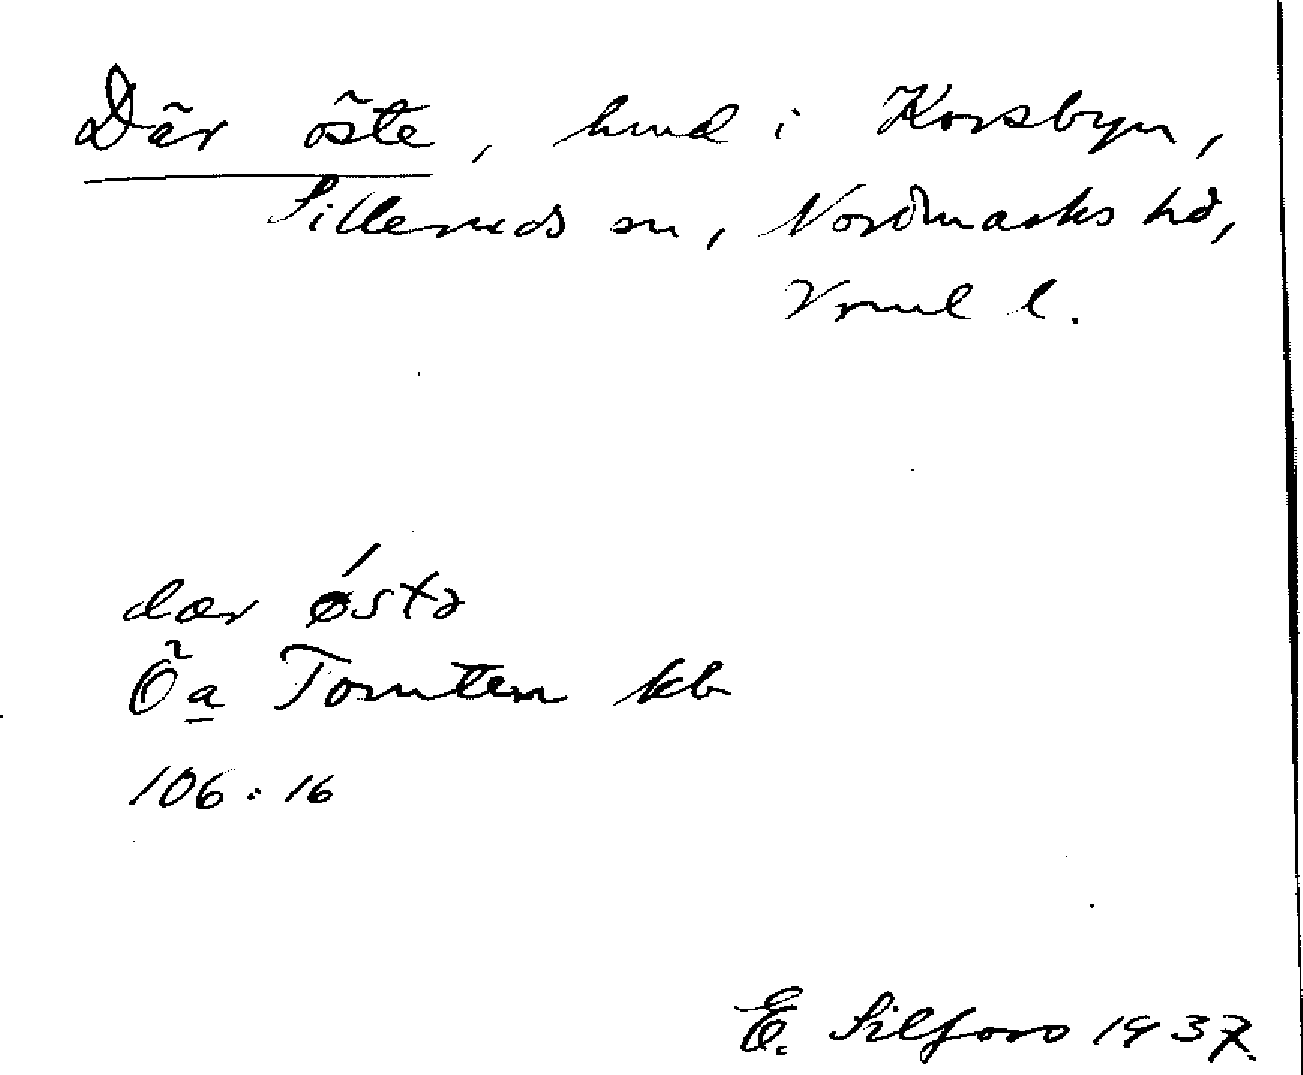 Där öste, hmd i Korsbyn,
Silleruds sn, Nordmarks hd,
Vrml l.
dær østə
Öa Tomten kb
106:16
E. Silfors 1937.